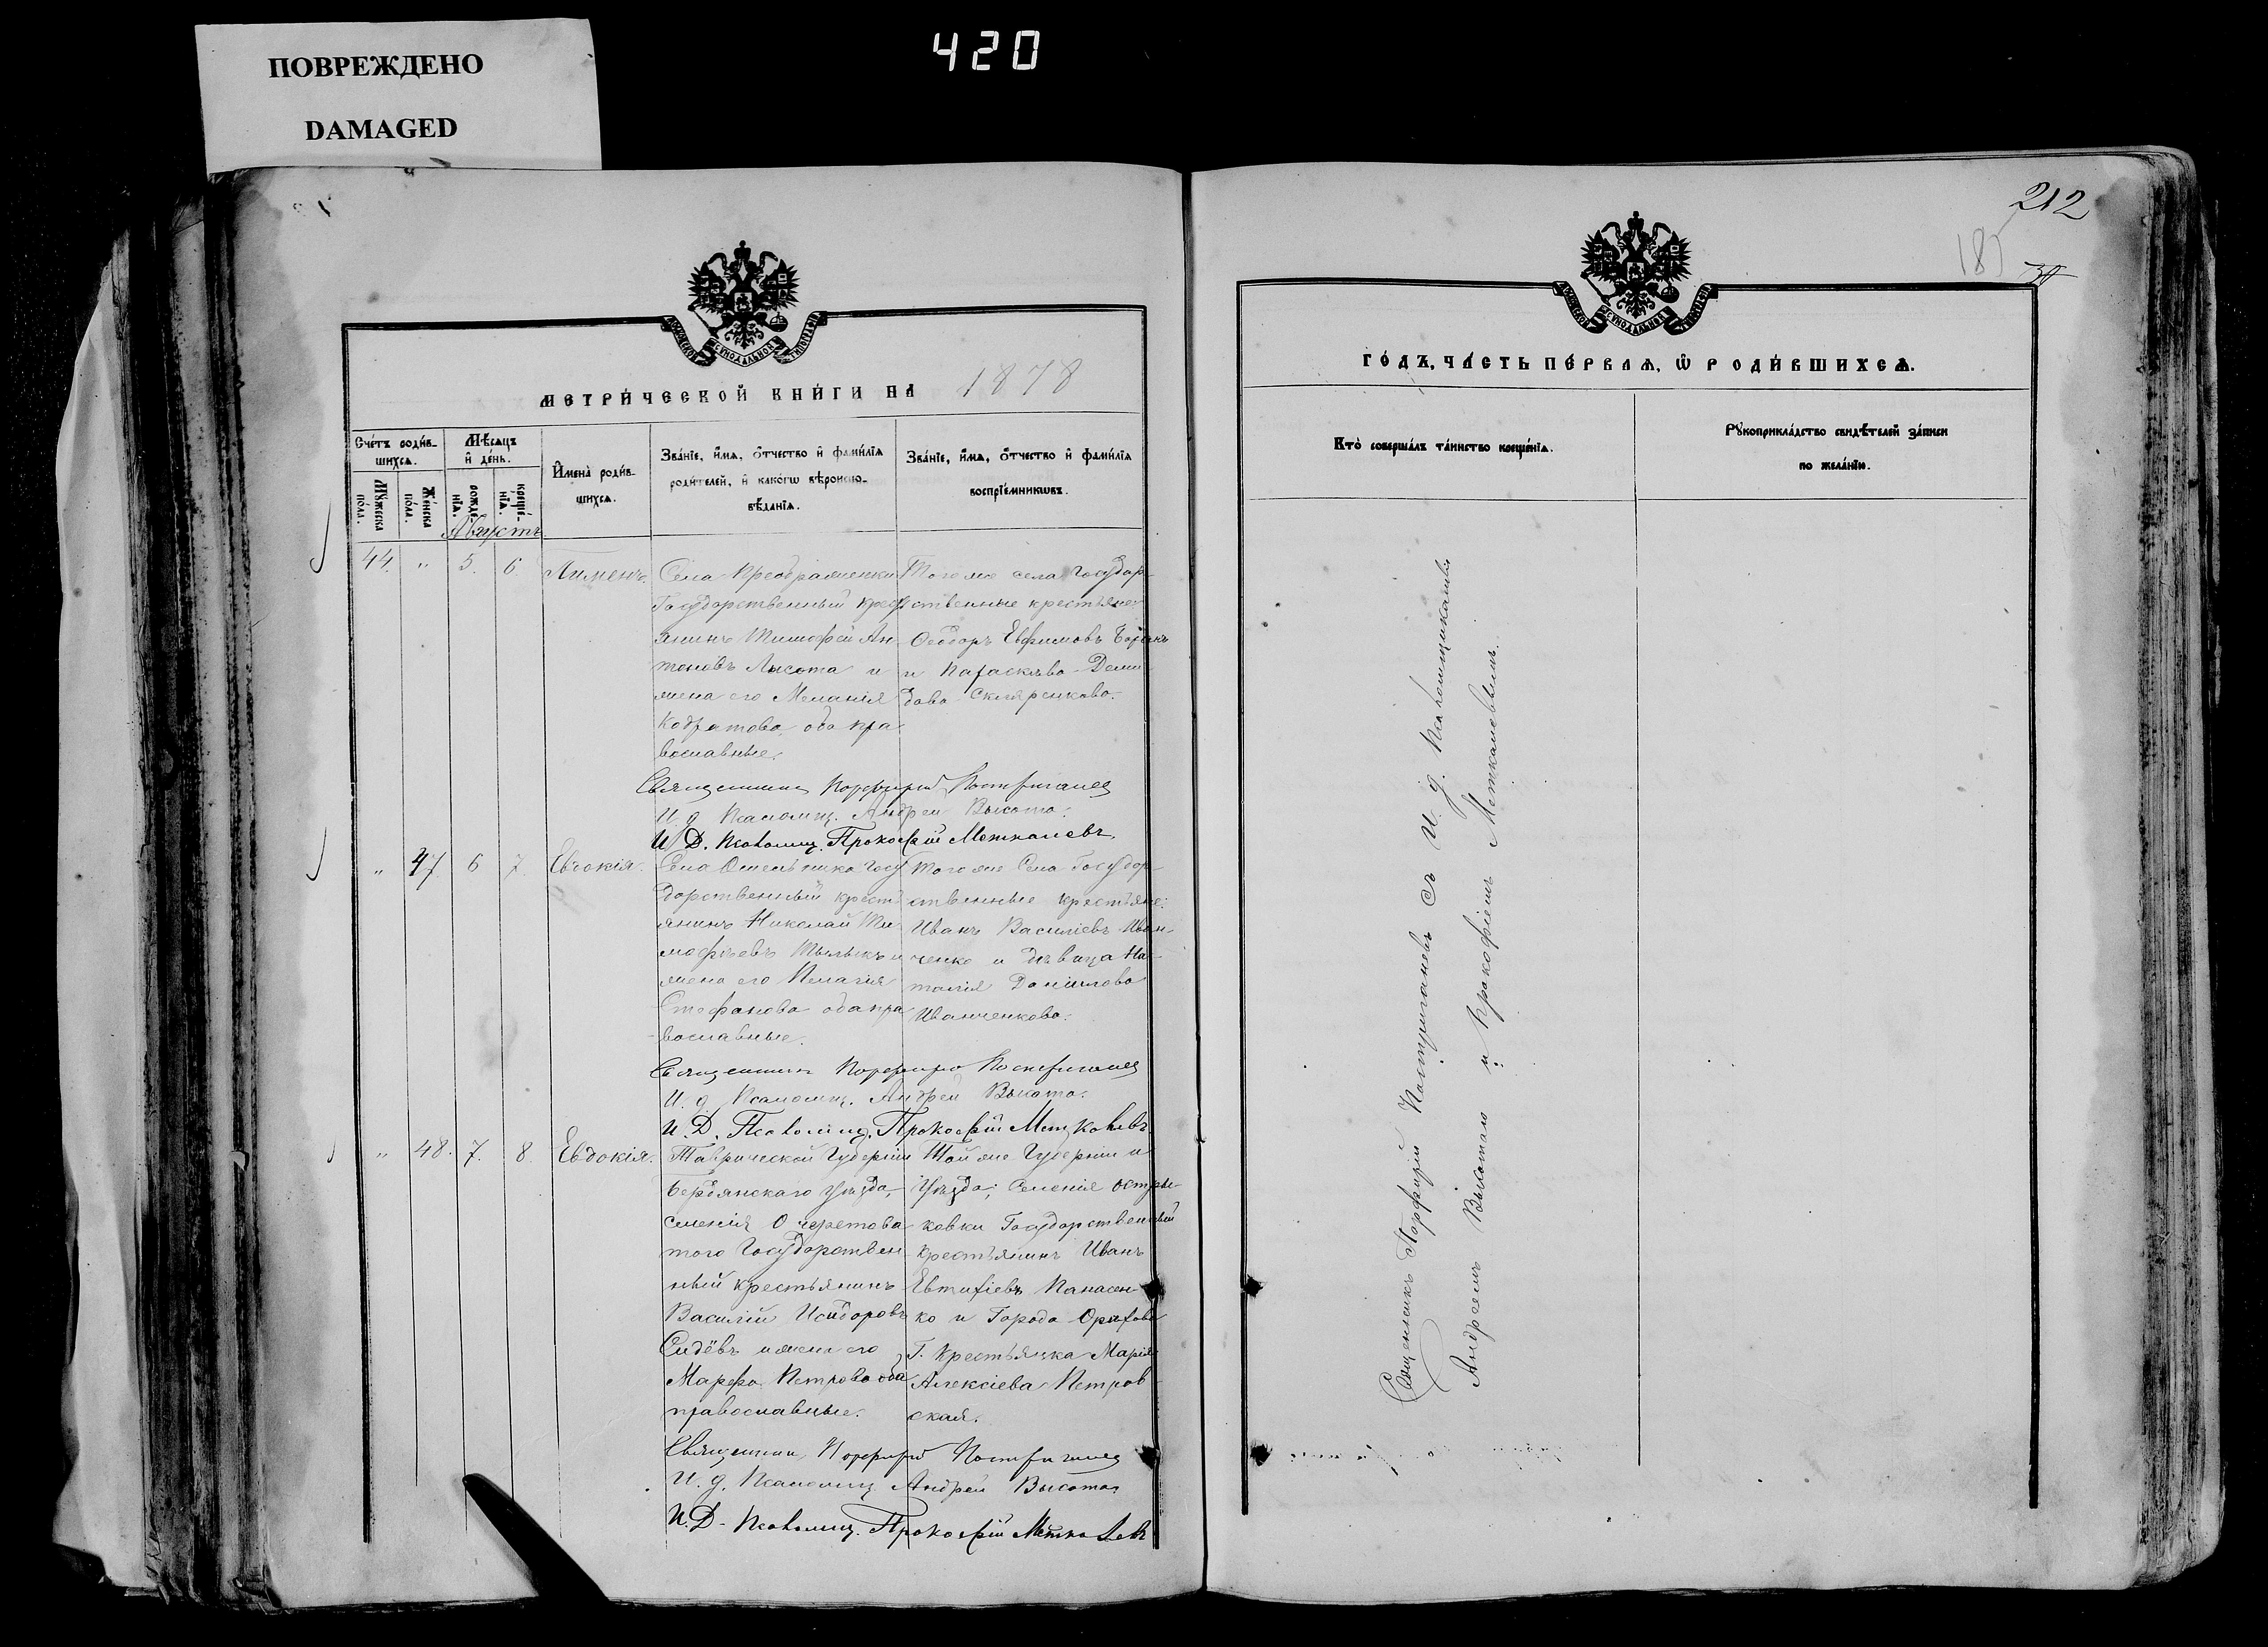 ПОВРЕЖДЕНО
DAMAGED
420
МЕТРИ́ЧЕСКОЙ КНИ́ГИ НА 1878
Сче́тъ роди́в-
шихсѧ.
Мꙋ́жеска по́ла.
Же́нска по́ла.
Мѣ́сѧцъ
и҆ де́нь.
рожде́-нїѧ.
креще́-нїѧ.
Августъ
И҆мена̀ роди́в-
шихсѧ.
Зва́нїе, и҆́мѧ, ѻ҆́тчество и҆ фами́лїѧ
роди́телей, и҆ како́гѡ вѣроиспо-
вѣ́данїѧ.
Зва́нїе, и҆́мѧ, ѻ҆́тчество и҆ фами́лїѧ
воспрїе́мникѡвъ.
44. " 5. 6. Пименъ.
Села Преображенки
Государственный крест
янинъ Тимофей Ан-
тоновъ Лысота и
жена его Меланія
Кодратова оба пра
вославные.
Того же села Государ-
ственные крестьяне
Ѳеодоръ Евфимовъ
и Параскева Деми
дова Скляренкова.
Священникъ Порфирій Постриганев
И. д. Псаломщ. Андрей Высота.
И. Д. Псаломщ. Прокофій Меткалевъ
" 47. 6 7. Евдокія.
Села Омельника Госу
дарственный крестъ
янинъ Николай Ти
мофѣевъ и
жена его Пелагія
Стефанова оба пра
вославные.
Того же Села Государ-
ственные крестьяне:
Иванъ Василіевъ Иван-
ченко и дѣвица На-
талія Данилова
Иванченкова.
Священникъ Порфирій Постриганев
И. д. Псаломщ. Андрей Высота.
И. Д. Псаломщ. Прокофій Меткалевъ
" 48. 7. 8. Евдокія.
Таврической Губерніи
Бердянскаго Уѣзда,
селенія Очеретова
того Государствен
ный крестьянинъ
Василій Исидоровъ
Сидёвъ и жена его
Марфа Петрова оба
православные.
Той же Губерніи и
Уѣзда; Селенія Остри-
ковки Государственный
крестьянинъ Иванъ
Евтихіевъ Панасен-
ко и Города Орѣхова
Г. Крестьянка Марія
Алексіева Петров
ская.
Священникъ Порфирій Постриганев
И. д. Псаломщ Андрей Высота
И. Д. Псаломщ. Прокофій Меткалев
212
ГО́ДЪ, ЧА́СТЬ ПЕ́РВАѦ, Ѡ҆ РОДИ́ВШИХСѦ.
Кто̀ соверша́лъ та́инство креще́нїѧ.
Рꙋкоприкла́дство свидѣ́телей за́писи
по жела́нїю.
Священникъ Порфирій Постриганевъ съ И. д. Псаломщиками
Андреемъ Высотою и Прокофіемъ Меткалевымъ.